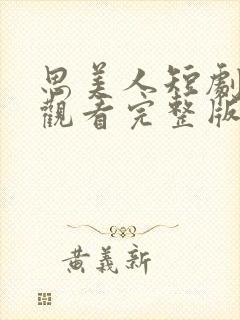 思美人短劇
觀看完整版
黃義新